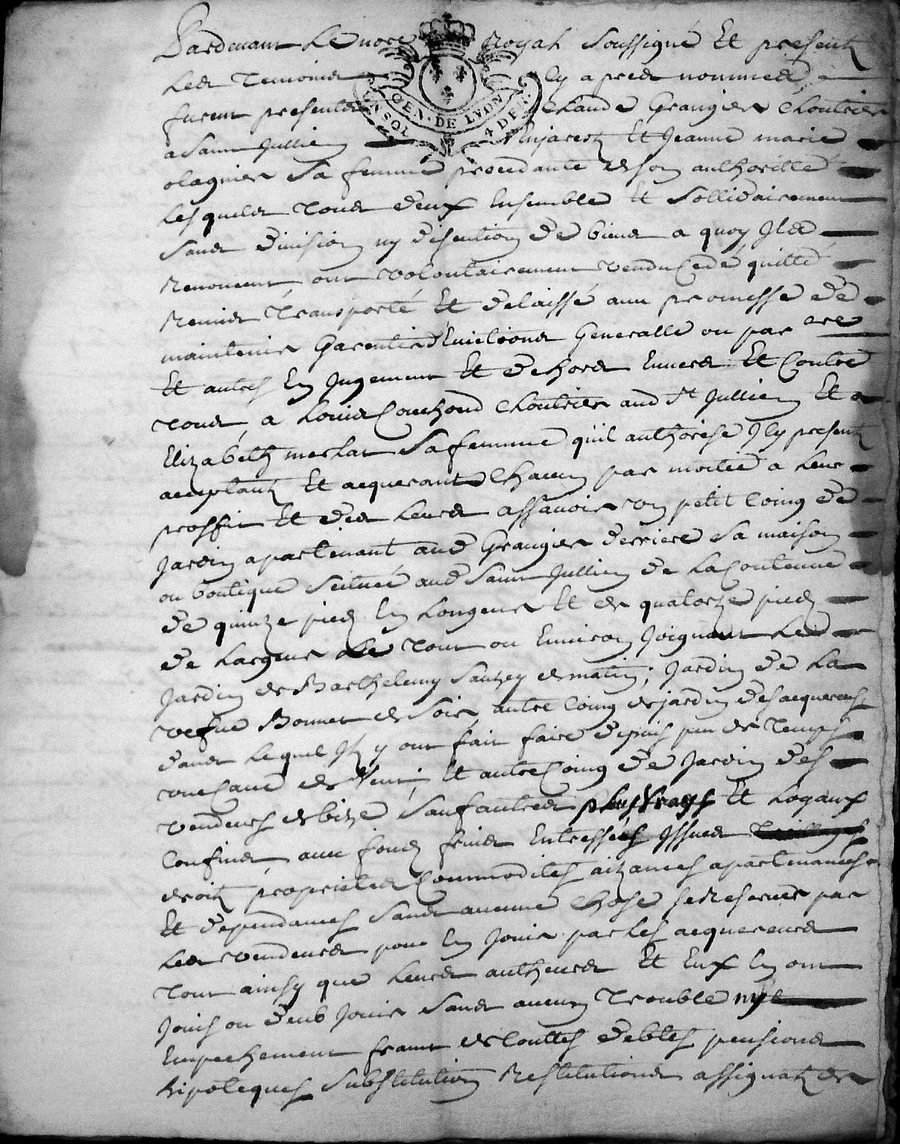 Pardevant Le nore Royal Soussigné Et presents
Les Temoins Cy apres nommes
GEN. DE LYON
UN SOL 4 DEN.
furent presents Claude Grangier Cloutrier
a Saint Jullien Enjarest Et Jeanne marie
olagnier Sa femme procedante de son authorité
Lesquels Tous deux Ensemble Et Sollidairement
Sans division ny discution de biens a quoy Ils
Renoncent ont volontairement vendu Cedé quitté
Remis Transporté Et delaissé avec promesse de
maintenir Garentir d'Evictions Generalle ou par
Et autres En Jugement Et dehors Envers Et Contre
Tous, a Louis Couchoud Cloutrier aud St Jullien Et a
Elizabeth merlat Sa femme qu'il authorise Icy presents
acceptants Et acquerants Chacun par moitié a Leur
proffit Et des Leurs assavoir un petit Coing de
Jardin apartenant aud Grangier derriere Sa maison
ou boutique Scituée aud Saint Jullien de La Contenue
de quinze pieds En Longeur Et de quatorze pieds
de Largeur Le Tout ou Environ Joignant Le
Jardin de Barthelemy Sauzey de matin; Jardin de La
vefue Bonnet de Soir, autre Coing de jardin des acquereurs
dans Lequel Ils y ont fait faire depuis peu de Temps
de Vent; Et autre Coing de Jardin des
vendeurs de bize Sauf autres plus vrays Et Logaux
Confins avec fonds fruits Entrees Issues
droits proprietes Commodites aizances apartenances
Et dependances Sans aucune Chose se Reserver par
Les vendeurs pour En Jouir par Les acquereurs
Tout ainsy que Leurs autheurs Et Eux En ont
Jouis ou deub Jouir Sans aucun Trouble ny
Empechement franc de Touttes debtes pensions
hipoteques Substitution Restitutions assignats de